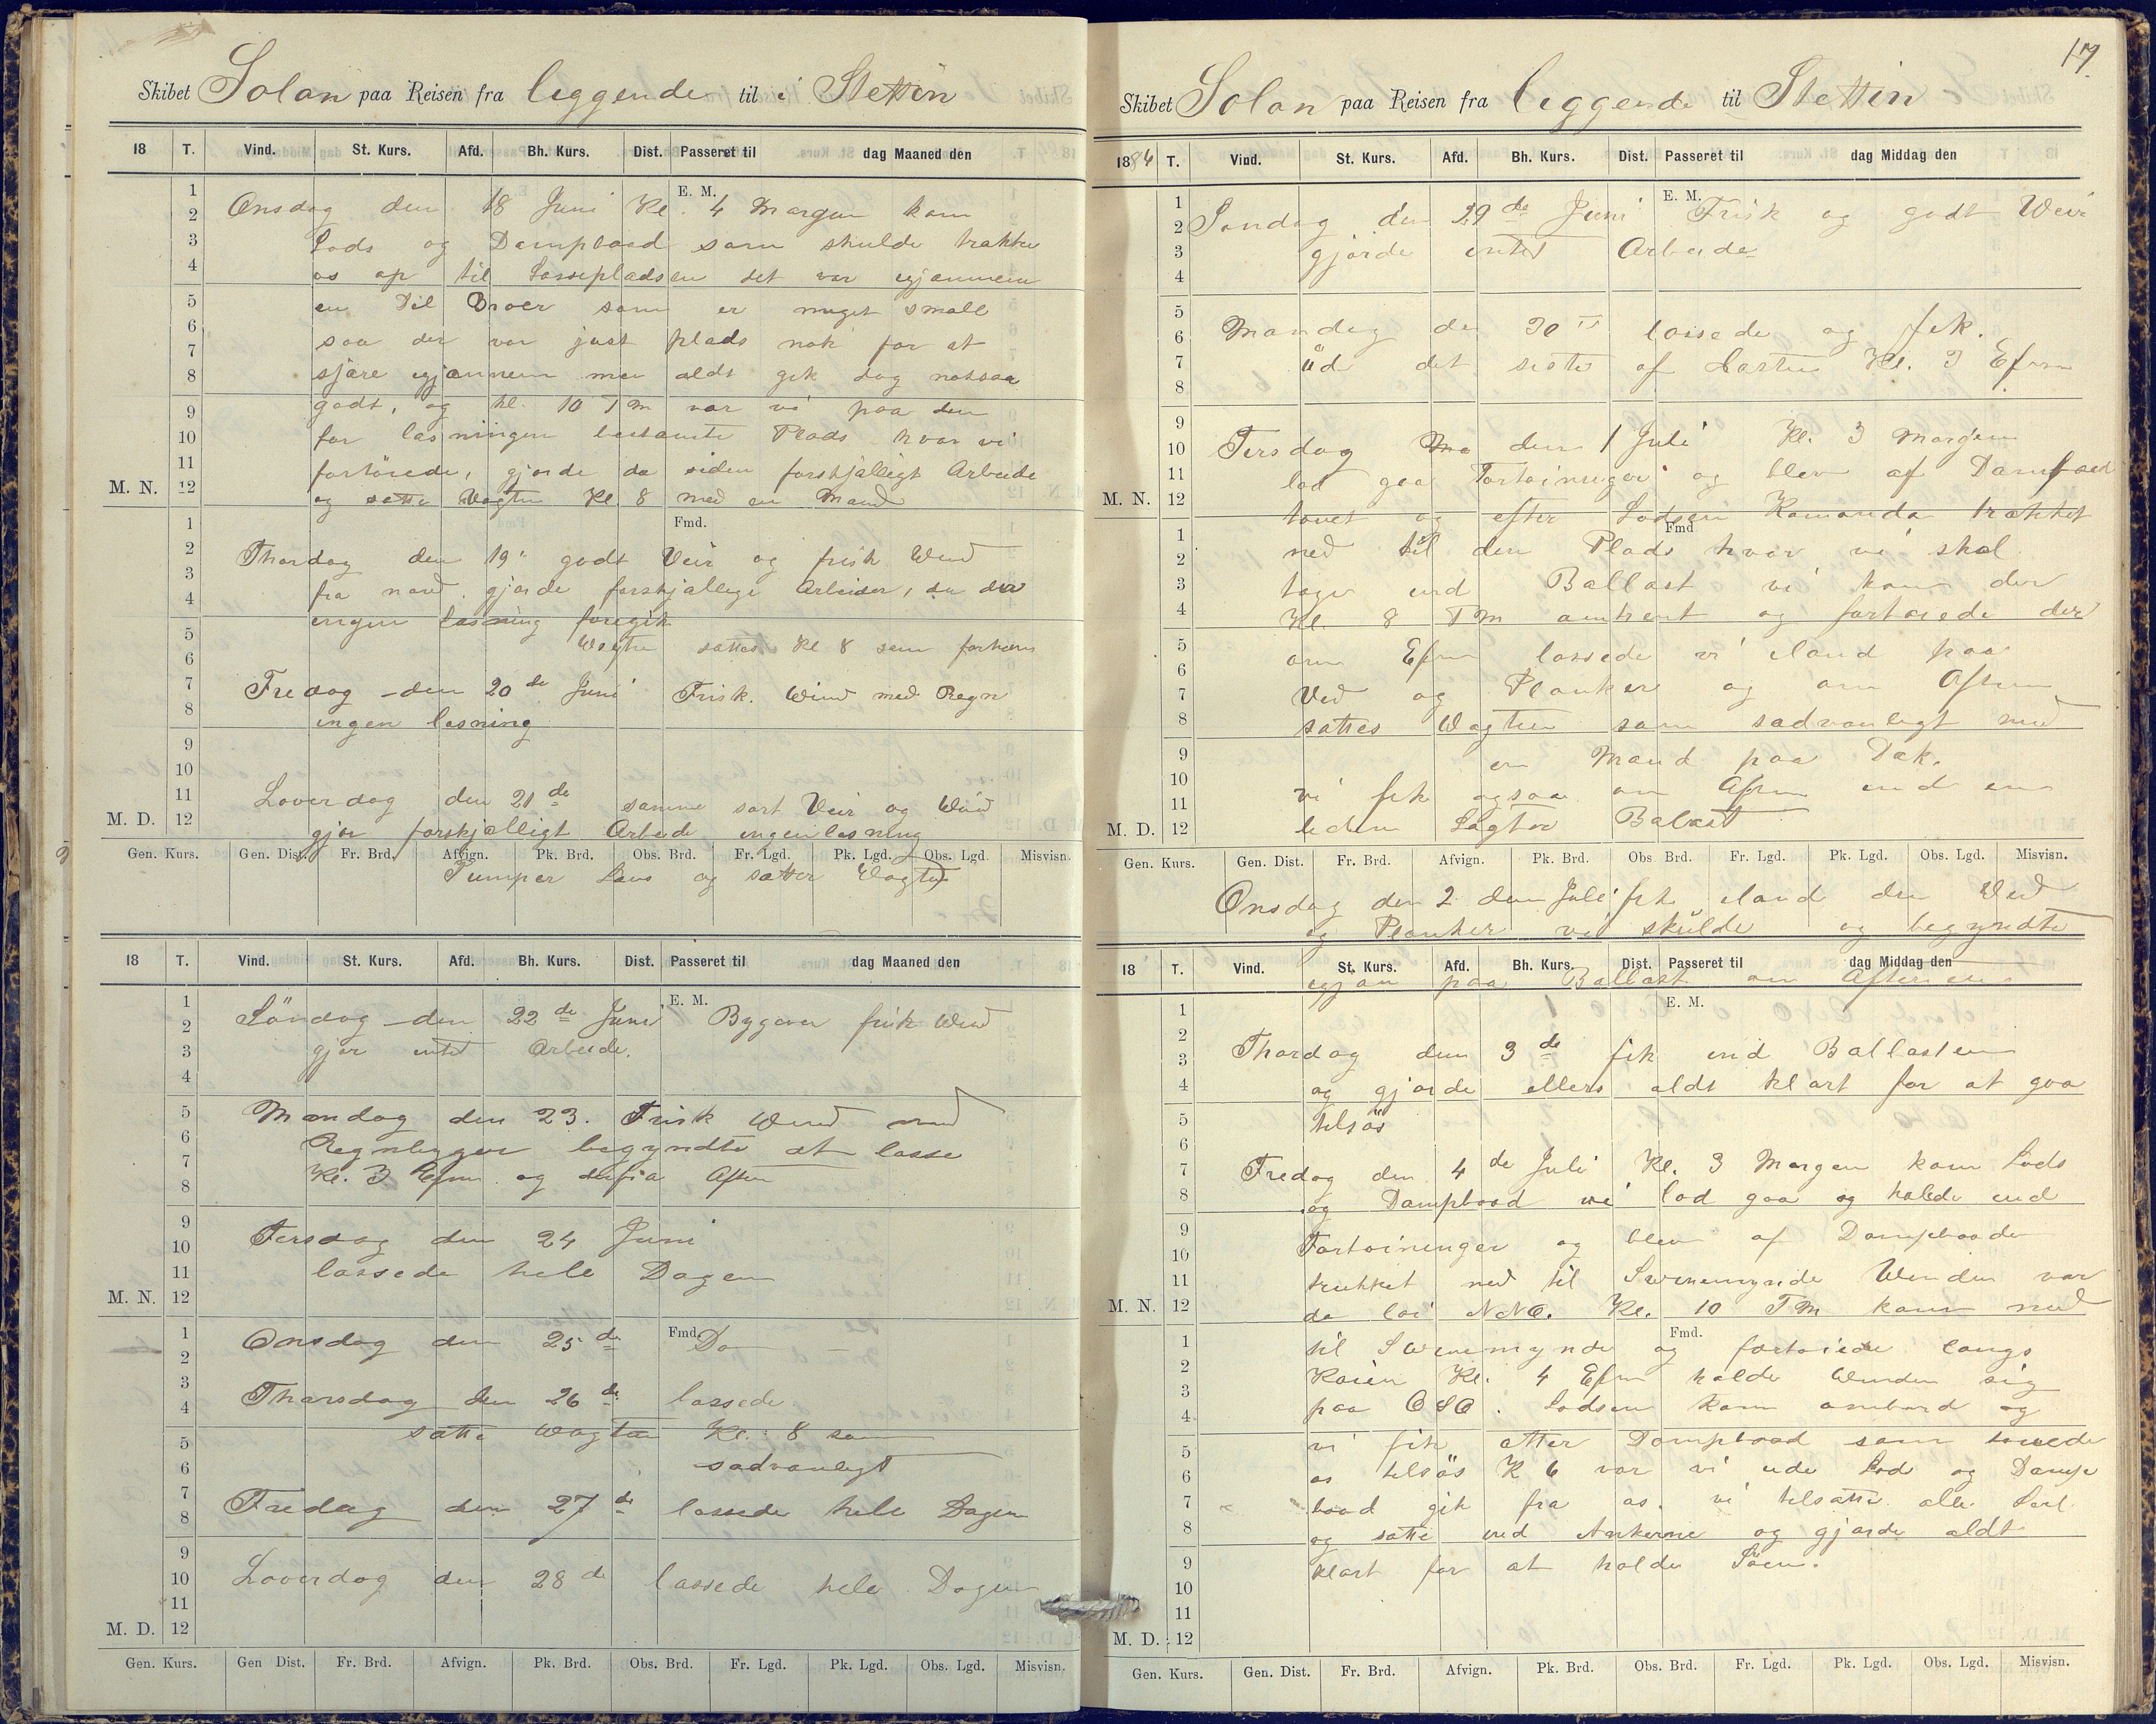 Skibet Solan paa Reisen fra leggende til i Stettin
18 T. Vind. St. Kurs. Afd. Bh. Kurs. Dist. Passeret til dag Maaned den
E. M.
1 2 3 4 5 6 7 8 9 10 11 12 M. N.
Onsdag den 18 Juni Kl. 4 Morgen kom
Lods og Dampbaad som skulde trakke
os op til Lossepladsen det var igjennem
en Del Broer som er meget small
saa der var just plads nok for at
sjäre igjennem men aldt gik dog
godt, og kl. 10 FM var vi paa den
for lasningen bestamte Plads hvor vi
fortöiede, gjorde da siden forskjälligt Arbeide
og satte Vagten Kl. 8 med en Mand
Fmd.
1 2 3 4 5 6 7 8 9 10 11 12 M. D.
Thorsdag den 19 godt Veir og frisk Wind
fra nord gjorde forskjallige Arbeider, da der
ingen lasning foregik
Wagten sattes Kl 8 som forhen
Fredag den 20 de Juni Frisk Wind med Regn
ingen lasning
Loverdag den 21 de samme sort Veir og Wind
gjör forskjälligt Arbeide ingen lasning
Gen. Kurs. Gen. Dist. Fr. Brd. Afvign. Pk. Brd. Obs. Brd. Fr. Lgd. Pk. Lgd. Obs. Lgd. Misvisn.
Pumper Lens og satter Vagten
18 T. Vind. St. Kurs. Afd. Bh. Kurs. Dist. Passeret til dag Maaned den
E. M.
1 2 3 4 5 6 7 8 9 10 11 12 M. N.
Söndag den 22 de Juni Bygever frisk Wind
gjör intet Arbeide.
Mandag den 23. Frisk Wind med
Regnbyger begyndte at losse
Kl. 3 Efm og Aften
Tirsdag den 24 Juni
lossede hele Dagen
Fmd.
1 2 3 4 5 6 7 8 9 10 11 12 M. D.
Onsdag den 25 de Do —
Tharsdag den 26 de lossede
satte Wagten Kl. 8 som
sadvanligt
Fredag den 27 de lossede hele Dagen
Loverdag den 28 de lossede hele Dagen
Gen. Kurs. Gen Dist. Fr. Brd. Afvign. Pk. Brd. Obs. Brd. Fr. Lgd. Pk. Lgd. Obs. Lgd. Misvisn.
17
Skibet Solan paa Reisen fra leggende til Stettin
1884 T. Vind. St. Kurs. Afd. Bh. Kurs. Dist. Passeret til dag Middag den
E. M.
1 2 3 4 5 6 7 8 9 10 11 12 M. N.
Sondag den 29 de Juni Frisk og godt Weir
gjorde intet Arbeide
Mandag den 30 te lossede og fik.
üd det siste af Lasten Kl. 3 Efm
Tirsdag den 1 Juli Kl. 3 Morgen
lod gaa Fortoininger og blev af Dampbaad
tauet og efter Lodsen Komando trakket
Fmd
1 2 3 4 5 6 7 8 9 10 11 12 M. D.
ned til den Plads hvor vi skal
tage ind Ballast vi kom der
Kl. 8 FM omtrent og fortoiede der
om Efm lossede vi iland paa
Ved og Planker og om Aften
sattes Wagten som sadvanligt med
en Mand paa Dak.
vi fik ogsaa om Aften ind en
liden Lagter Balast
Gen. Kurs. Gen. Dist. Fr. Brd. Afvign. Pk. Brd. Obs Brd. Fr. Lgd. Pk. Lgd. Obs. Lgd. Misvisn.
Onsdag den 2 den Juli fik iland den Ved
og Planker vi skülde og begyndte
18 T. Vind. St. Kurs. Afd. Bh. Kurs. Dist. Passeret til dag Middag den
igjen paa Ballast om Aftenen
E. M.
1 2 3 4 5 6 7 8 9 10 11 12 M. N.
Thordag den 3 de fik ind Ballasten
og gjorde ellers aldt klart for at gaa
tilsös
Fredag den 4 de Juli Kl. 3 Morgen kom Lods
og Dampbaad vi lod gaa og halede ind
Fortoininger og blev af Dampbaaden
trukket ned til Swinemynde Winden var
da loi NNO. Kl. 10 FM kom ned
Fmd.
1 2 3 4 5 6 7 8 9 10 11 12 M. D.
til Swinemynde og fortoiede langs
Kaien Kl. 4 Efm holdt Winden sig
paa OSO. Lodsen kom ombord og
vi fik atter Dampbaad som tauede
os tilsös K 6 var vi ude Lods og Damp
baad gik fra os. vi tilsatte alle Seil
og satte ind Ankerne og gjorde aldt
klart for at holde Söen.
Gen. Kurs. Gen. Dist. Fr. Brd. Afvign. Pk. Brd. Obs. Brd. Fr. Lgd. Pk. Lgd. Obs. Lgd. Misvisn.